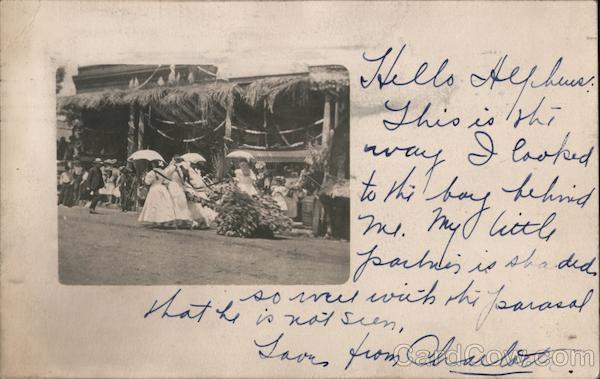 Hello Alpheus:
This is the
way I looked
to the boy behind
me. My little
partner is shaded
so well with the parasol
that he is not seen,
Love from
CardCow.com